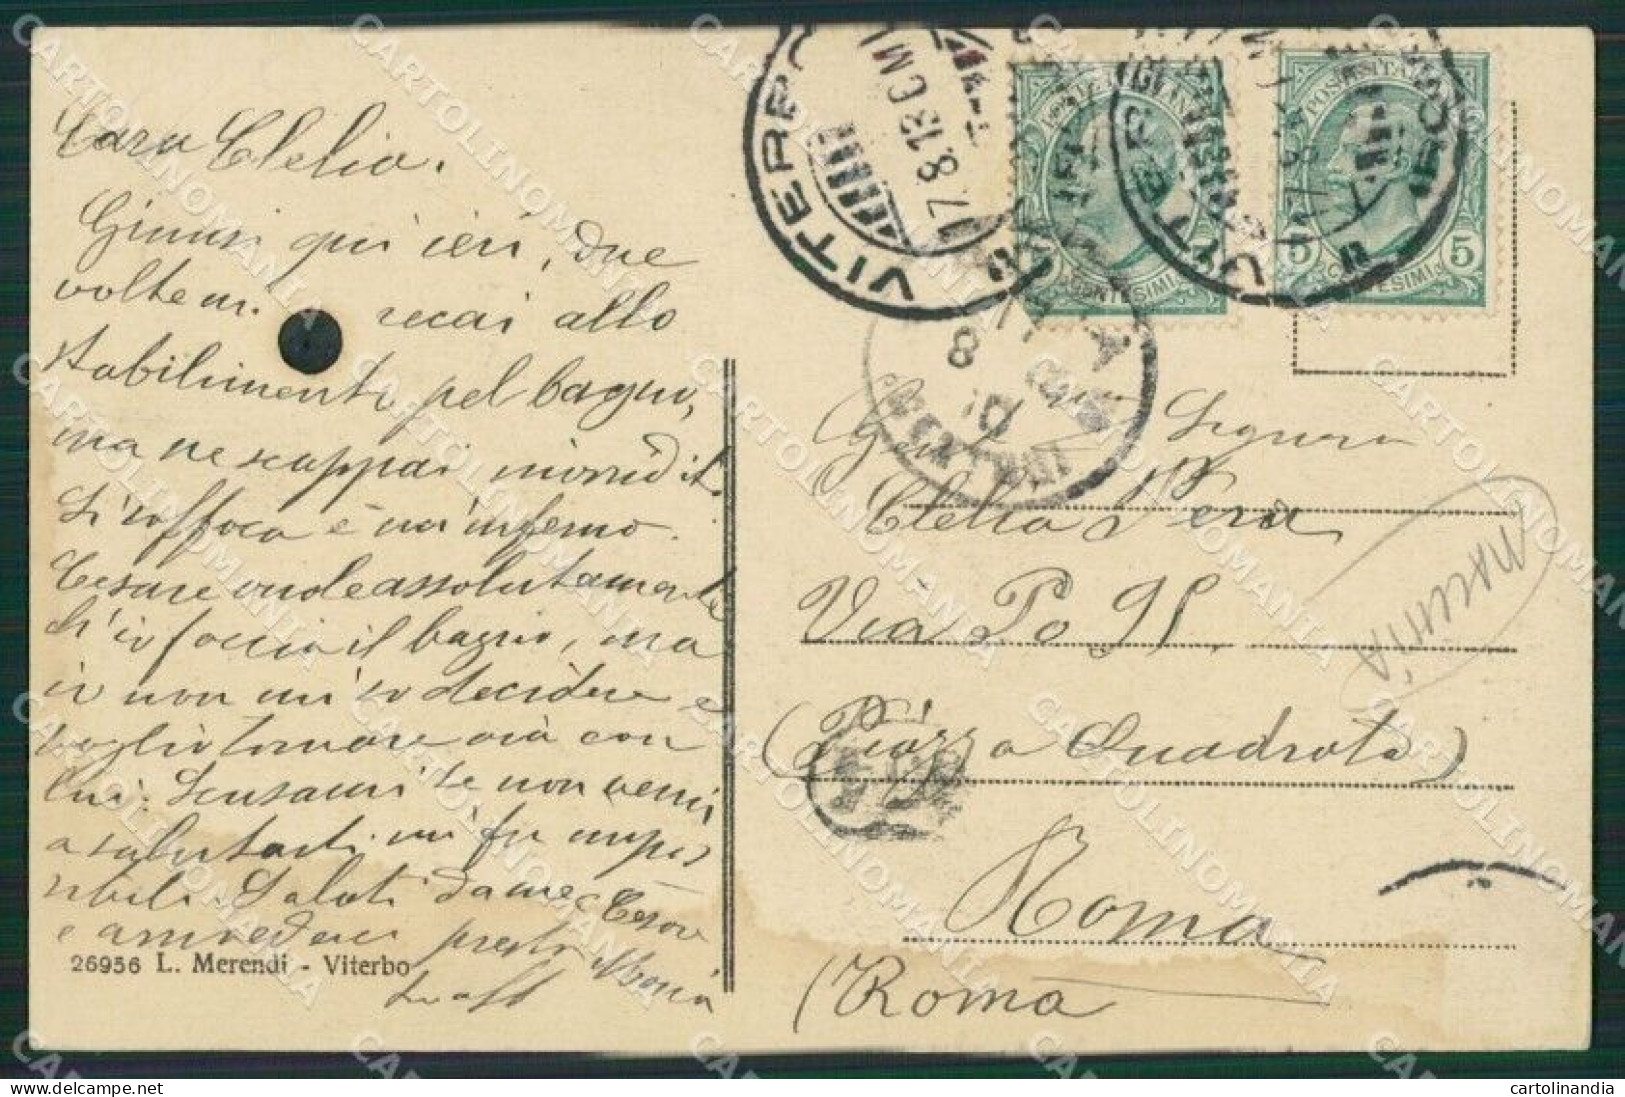 Cara Clelia.
Giunsi qui ieri, due
volte mi recai allo
stabilimento pel bagno,
ma ne scappai
si soffoca è un inferno.
Cesare vuole assolutamente
ch'io faccia il bagno, ma
io non mi so decidere e
voglio tornare via con
lui. Scusami se non venni
a salutarti. mi fu impos
sibile. Saluti da me e Cesare
e arrivederci presto
26956 L. Merendi - Viterbo
VITERBO
17.8.13
VITERBO
POSTE ITALIANE
CENTESIMI
POSTE ITALIANE
5 5
CENTESIMI
Gent.ma Signora
Clelia Pera
Via Po
(Piazza Quadrata)
Roma
(Roma
CARTOLINOMANIA
cartolinandia